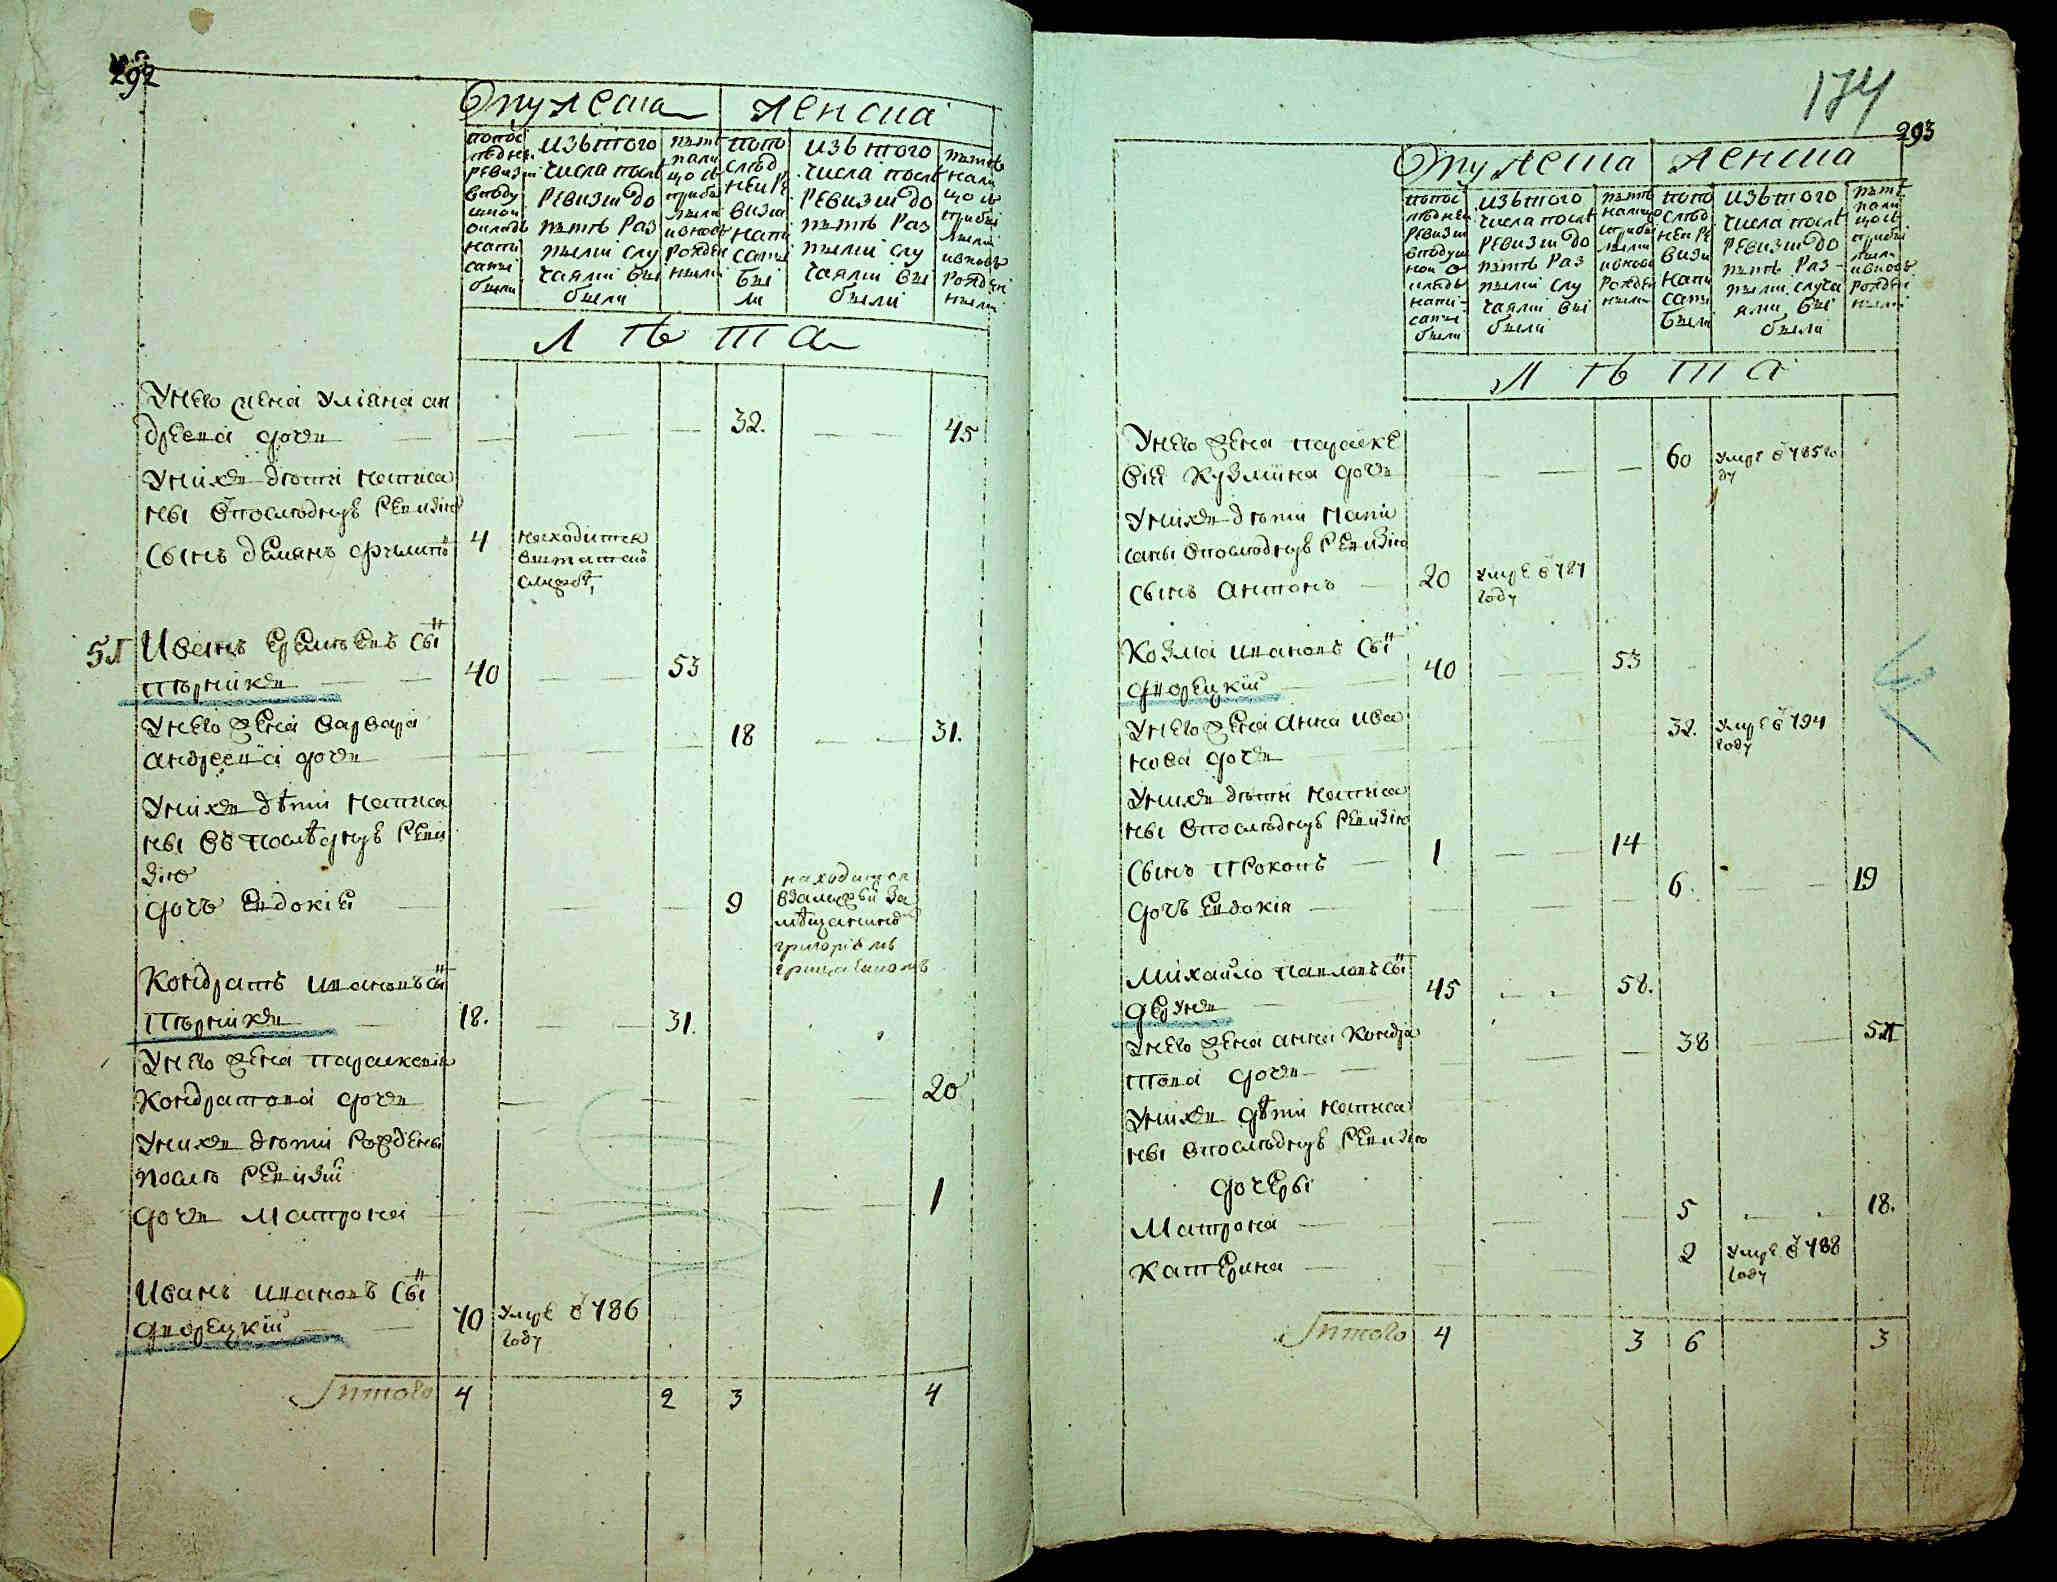 292
Мужеска Женска
попос
ледней
ревизии
вподу
шной
окладъ
напи
саны
были
изътого
числа после
ревизии до
нынѣ раз
ными слу
чаями вы
были
нынѣ
нали
цо съ
прибы
лыми
ивновь
рожден
ными
попо
след
ней ре
визии
напи
саны
бы
ли
изътого
числа послѣ
ревизии до
нынѣ раз
ными слу
чаями вы
были
нынѣ
нали
цо съ
прибы
лыми
ивновь
рожден
ными
Лѣта
Унего жена Улияна ан
дреева дочь 32. 45
Унихъ дети написа
ны впоследную ревизию
Сынъ Демянъ Филипъ 4 находится
вштатской
службѣ,
Иванъ Еремѣевъ сынъ
Пърникъ 40 53
Унего жена Варвара
Андреева дочь 18 31.
Унихъ дѣти написа
ны въ послѣдную реви
зию
дочь Евдокия 9 находится
взамужъи за
мѣщанином
григориемъ
Кондратъ Ивановъ сынъ
Пърникъ 18. 31.
Унего жена Параскевия
Кондратова дочь 20
Унихъ дети рождены
после ревизии
дочь Матрона 1
Иванъ Ивановъ сынъ
дворецкий 70 Умре в 786
году
Итого 4 2 3 4
174
293
Мужеска Женска
попос
ледней
ревизии
вподуш
ной о
кладъ
напи-
саны
были
изътого
числа послѣ
ревизии до
нынѣ раз
ными слу
чаями вы
были
нынѣ
налицо
сприбы
лыми
ивновь
рожден
ными
попо
след
ней ре
визии
напи
саны
были
изътого
числа послѣ
ревизии до
нынѣ раз-
ными случа
ями вы
были
нынѣ
нали
цо съ
прибы
лыми
ивновь
рожден
ными
Лѣта
Унего жена Параске
вия Кузмина дочь 60 Умре в 785 го
ду
Унихъ дети напи
саны впоследную ревизию
Сынъ Антонъ 20 Умре в 787
году
Козма Ивановъ сынъ
дворецкий 40 53
Унего жена Анна Ива
нова дочь 32. Умре в 794
году
Унихъ дети написа
ны впоследную ревизию
Сынъ Прокопъ 1 14
дочь Евдокия 6. 19
Михайло Павловъ сынъ
45 58.
Унего жена Анна Кондра
това дочь 38 51
Унихъ дѣти написа
ны впоследную ревизию
дочери
Матрона 5 18.
Катерина 2 Умре в 788
году
Итого 4 3 6 3